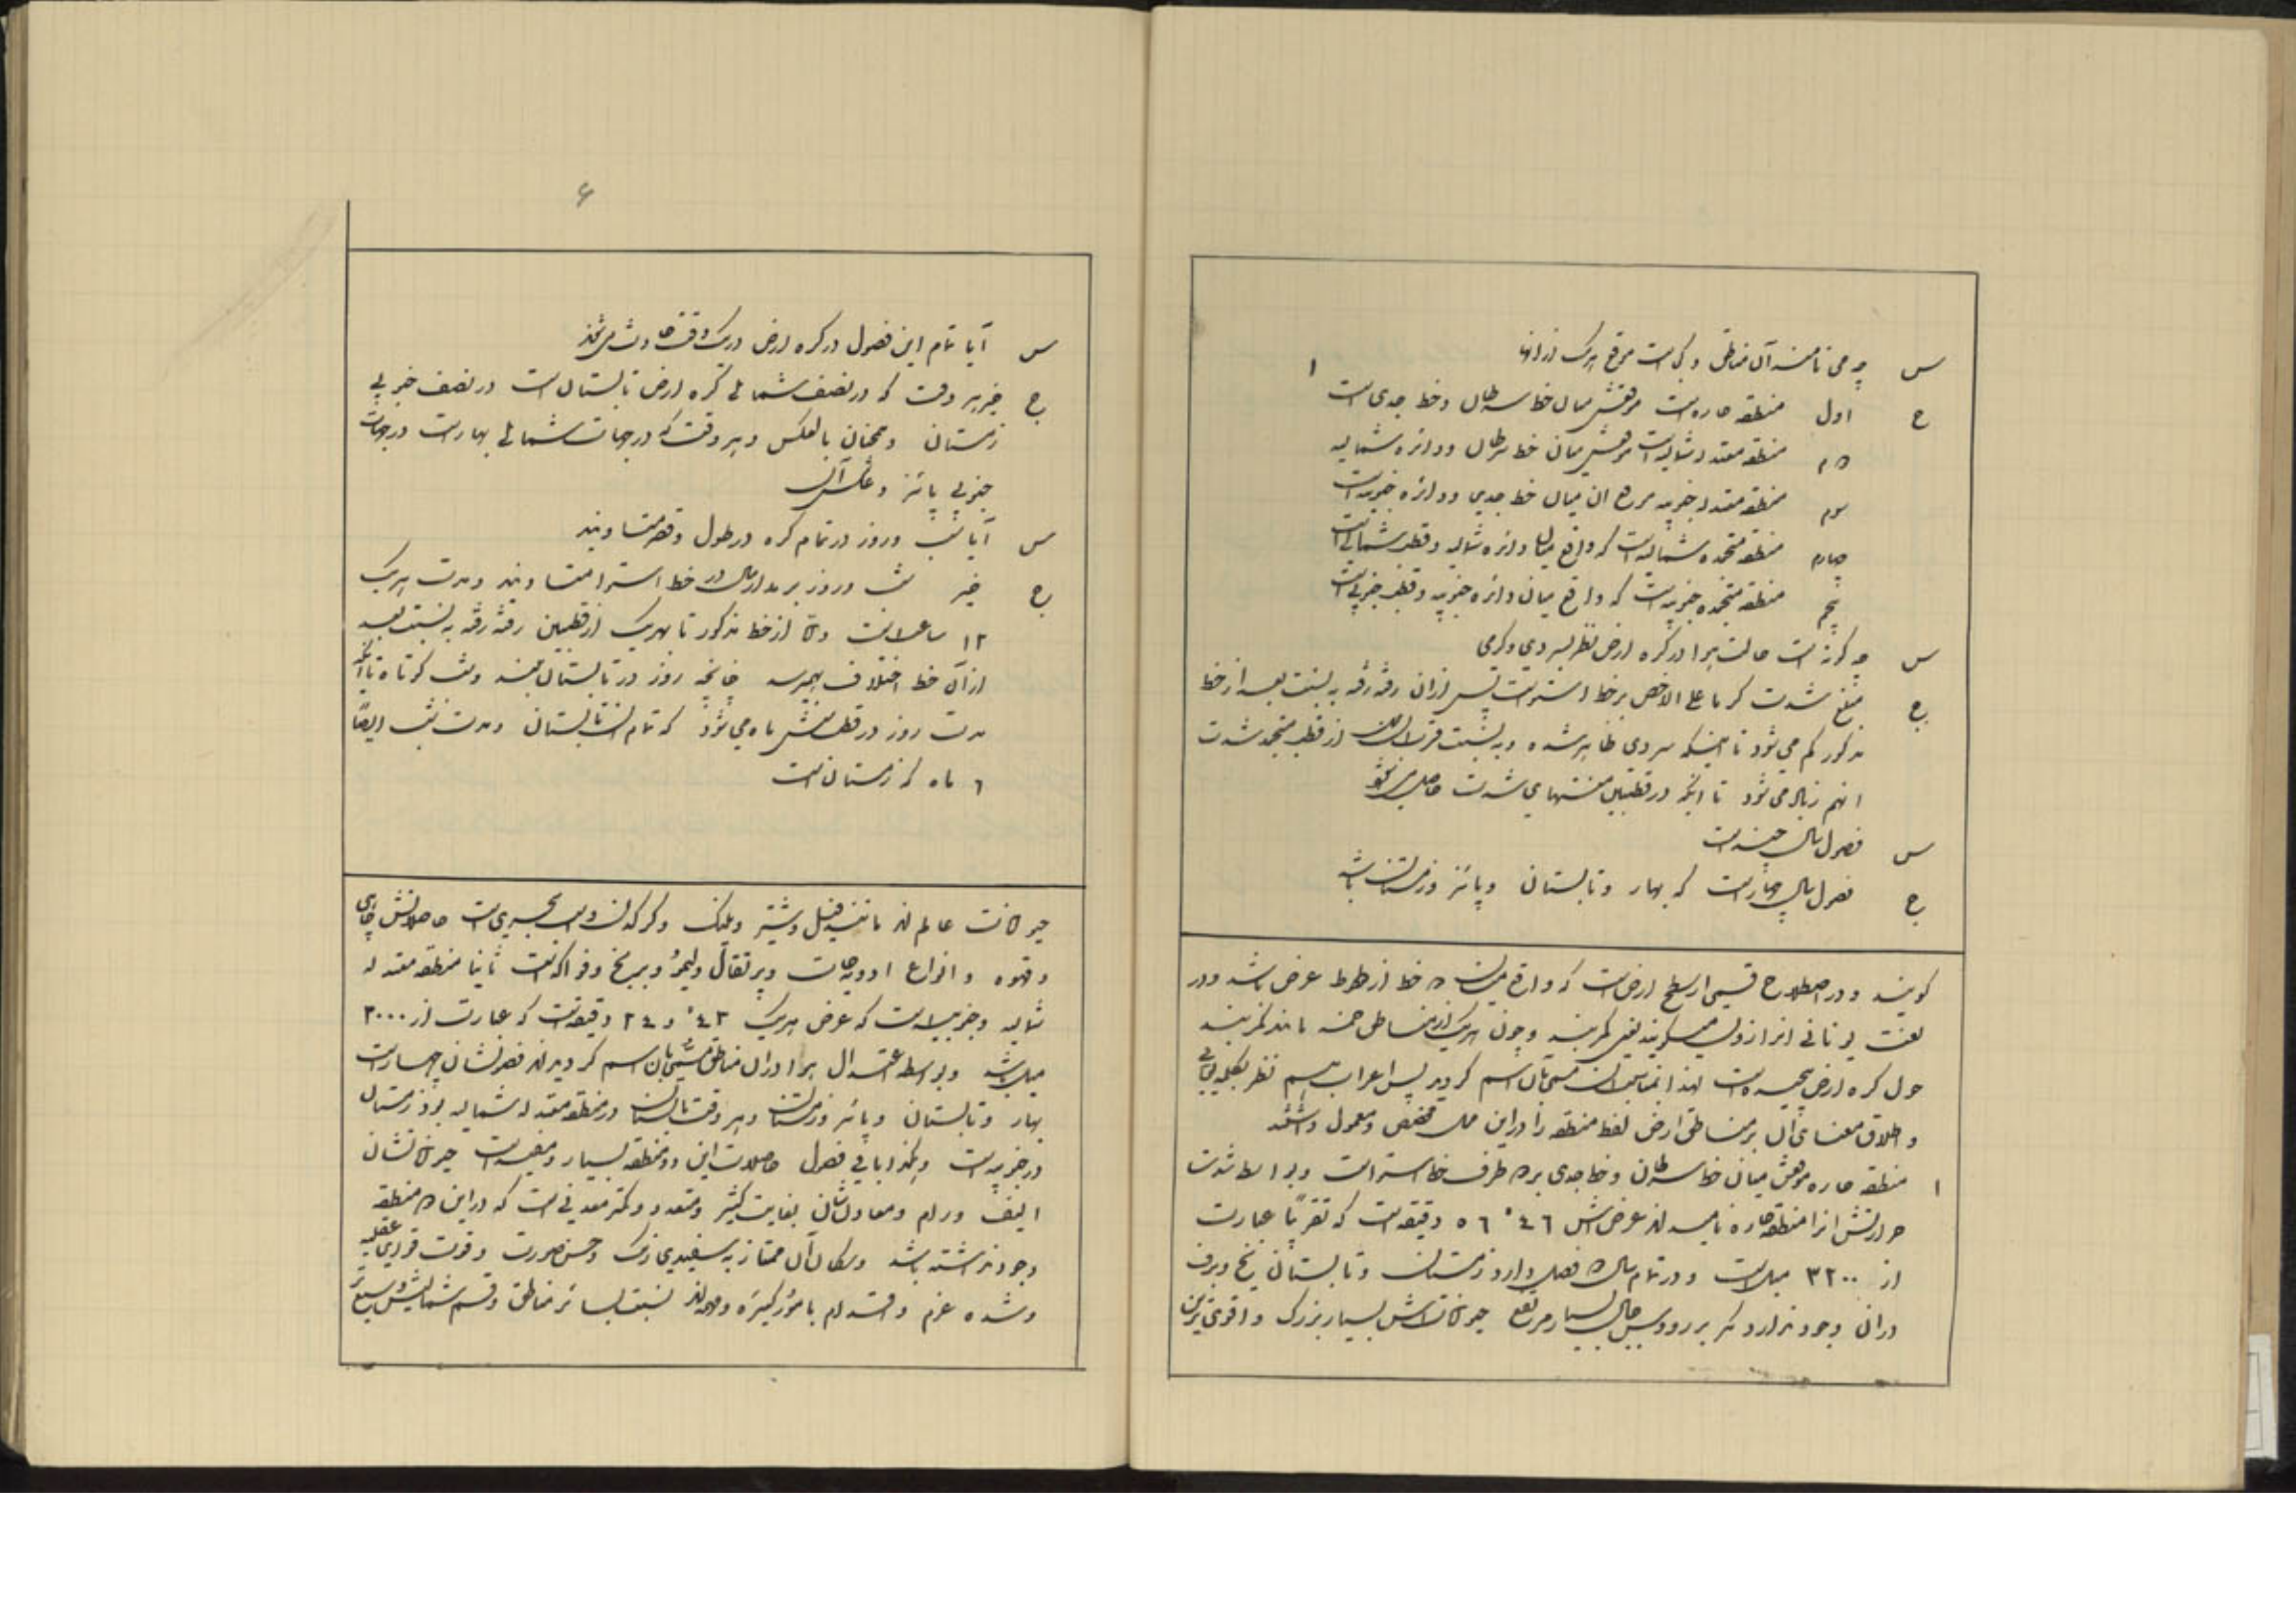 س چه می نامند آن مناطق و کجاست موقع هریک از آنها
ج اول منطقه حاره است موقعش میان خط سرطان و خط جدی است ۱
دوم منطقه معتدله شمالیه است موقعش میان خط سرطان و دائره شمالیه
سوم منطقه معتدله جنوبیه موقع ان میان خط جدی و دائره جنوبیه است
چهارم منطقه متجمده شمالیه است که واقع میان دائره شمالیه و قطب شمالی است
پنجم منطقه متجمده جنوبیه است که واقع میان دائره جنوبیه و قطب جنوبی است
س چه گونه است حالت هوا در کره ارض نظر بسردی و گرمی
ج شدت گرما علی الاخص بر خط استواست پس از ان رفته رفته به نسبت بعد از خط
مذکور کم می شود تا اینکه سردی ظاهر شده و به نسبت قرب از قطب متجمد شدت
انهم زیاد می شود تا انکه در قطبین منتهای شدت حاصل می شود
س فصول سال چند است
ج فصول سال چهار است که بهار و تابستان و پائز و زمستان باشد
گویند و در اصطلاح قسمی از سطح ارض است که واقع میان دو خط از خطوط عرض باشد و در
لغت یونانی انرا زون میگویند یعنی کمربند و چون هریک از مناطق خمسه مانند کمربند
حول کره ارض پیچیده است لهذا بمناسبت ان مسمی بان اسم گردید پس اعراب هم نظر بکلمه یونانی
و اطلاق معنای آن بر مناطق ارض لفظ منطقه را در این محل مخصص و معمول داشتند
۱ منطقه حاره موقعش میان خط سرطان و خط جدی بر دو طرف خط استواست و بواسطه شدت
حرارتش انرا منطقه حاره نامیده اند عرضش ٤٦° ٥٦ دقیقه است که تقریباً عبارت
از ۳۲۰۰ میل است و در تمام سال دو فصل دارد زمستان و تابستان یخ و برف
در ان وجود ندارد مگر بر رؤوس جبال بسیار مرتفع حیواناتش بسیار بزرگ و اقوی ترین
۶
س آیا تمام این فصول در کره ارض در یک وقت حادث می شوند
ج خیر هر وقت که در نصف شمالی کره ارض تابستان است در نصف جنوبی
زمستان و همچنان بالعکس و هر وقت که در جهات شمالی بهار است در جهات
جنوبی پائز و عکس آن
س آیا شب و روز در تمام کره در طول و قصر متساویند
ج خیر شب و روز بر مدار سال در خط استوا متساویند و مدت هریک
۱۲ ساعت است و از خط مذکور تا بهریک از قطبین رفته رفته به نسبت بعد
از آن خط اختلاف بهمرسد چنانچه روز در تابستان بلند و شب کوتاه تا آنکه
مدت روز در قطب شش ماه می شود که تمام ان تابستان و مدت شب ایضاً
٦ ماه که زمستان است
حیوانات عالم اند مانند فیل و شیر و پلنگ و کرکدن و اسب بحری است حاصلاتش چای
و قهوه و انواع ادویه جات و پرتقال و لیمو و برنج و فواکه است ثانیا منطقه معتدله
شمالیه و جنوبیه است که عرض هریک ٤٣° و ٢٤ دقیقه است که عبارت از ۳۰۰۰
میل باشد و بواسطه اعتدال هوا در ان مناطق مسمی بان اسم گردیده اند فصولشان چهار است
بهار و تابستان و پائز و زمستان و هر وقت تابستان در منطقه معتدله شمالیه بود زمستان
در جنوبیه است و هکذا باقی فصول حاصلات این دو منطقه بسیار و مفید است حیواناتشان
الیف و رام و معادنشان بغایت کثیر و متعدد و کمتر معدنی است که در این دو منطقه
وجود نداشته باشد و سکان آن ممتاز به سفیدی رنگ و حسن صورت و قوت قوای عقلیه
و شده عزم و اقدام بامور کبیره و مهمه اند نسبت بسائر مناطق و قسم شمالیش وسیع تر